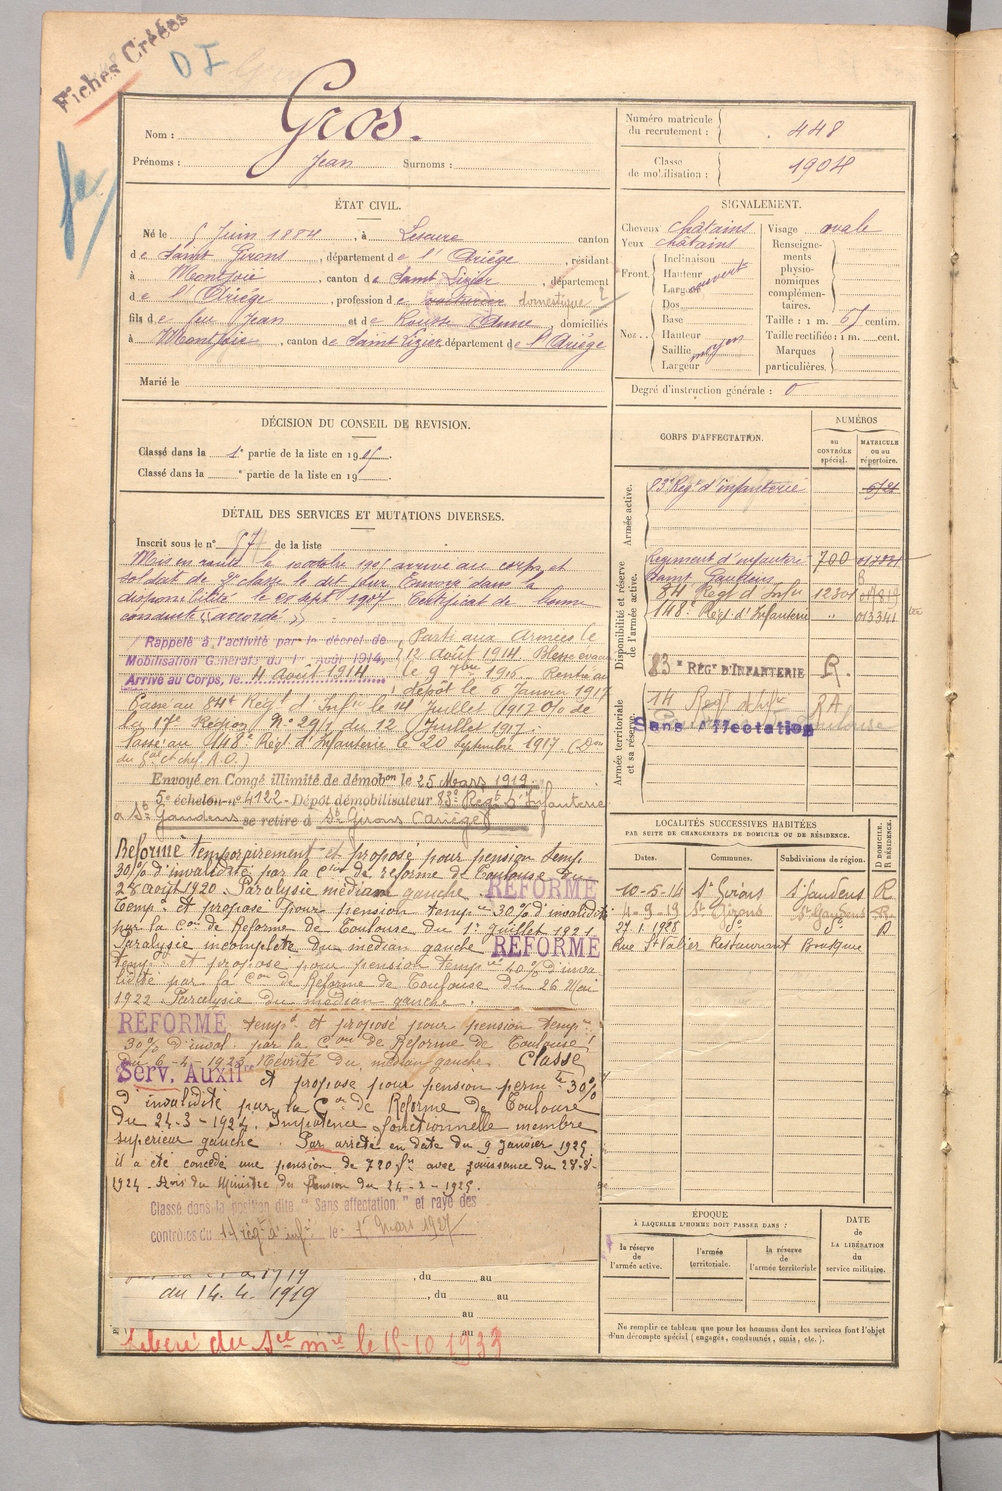 Fiches Créées
D I
Nom : Gros.
Prénoms : Jean Surnoms :
Numéro matricule du recrutement : 448
Classe de mobilisation : 1904
ÉTAT CIVIL.
Né le 5 Juin 1884, à Lescure canton
de Saint Girons, département de l'Ariège, résidant
à Montjoie, canton de Saint Lizier, département
de l'Ariège, profession de domestique
fils de feu Jean et de Rousse Anne, domiciliés
à Montjoie, canton de Saint Lizier, département de l'Ariège
Marié le
SIGNALEMENT.
Cheveux châtains
Yeux châtains
Front. Inclinaison
Hauteur
Largeur
ouvert
Nez.. Dos
Base
Hauteur
Saillie
Largeur
moyen
Visage ovale
Renseignements physionomiques complémentaires.
Taille : 1 m. 57 centim.
Taille rectifiée : 1 m. cent.
Marques particulières.
Degré d'instruction générale : 0
DÉCISION DU CONSEIL DE REVISION.
Classé dans la 1e partie de la liste en 1905.
Classé dans la e partie de la liste en 19 .
DÉTAIL DES SERVICES ET MUTATIONS DIVERSES.
Inscrit sous le n° 57 de la liste
Mis en route le 10 octobre 1905 arrivé au corps et
soldat de 2e classe le dit jour Envoyé dans la
disponibilité le sept 1907 Certificat de bonne
conduite "accordé"
Rappelé à l'activité par le décret de
Mobilisation Générale du 1er Août 1914.
Arrivé au Corps, le 4 août 1914
Parti aux Armées le
12 août 1914. Blessé évacué
le 9 7bre 1916. Rentré au
dépôt le 6 Janvier 1917
Passé au 84e Régt d'Infie le 14 Juillet 1917 O/ de
la 17e Région N° 29/1 du 12 Juillet 1917.
Passé au 148e Régt d'Infanterie le 20 septembre 1917 (Don
du Gal ct chef A.O.)
Envoyé en Congé illimité de démobon le 25 Mars 1919.
5e échelon n° 4122 - Dépôt démobilisateur 83e Régt d'Infanterie
a St Gaudens se retire à St Girons (Ariège)
Réformé temporairement et proposé pour pension temp.
30% d'invalidité par la Cion de réforme de Toulouse du
28 août 1920. Paralysie médian gauche. RÉFORMÉ
Tempre et proposé pour pension tempre 30% d'invalidité
par la Con de Reforme de Toulouse du 1er Juillet 1921
Paralysie incomplète du médian gauche RÉFORMÉ
tempre et proposé pour pension tempre 40% d'inva
lidité par la Con de Réforme de Toulouse du 26 Mai
1922 Paralysie du médian gauche.
RÉFORMÉ tempre et proposé pour pension tempre
30% d'inval. par la Con de Réforme de Toulouse
du 6-4-1923 Névrite du médian gauche. Classé
Serv. Auxilre et proposé pour pension permte 30%
d'invalidité par la Con de Réforme de Toulouse
du 24-3-1924. Impotence fonctionnelle membre
supérieur gauche. Par arrêté en date du 9 Janvier 1925
il a été concédé une pension de 720 frs avec jouissance du 28-8-
1924. Avis du Ministre des Pension du 24-2-1925.
Classé dans la position dite "Sans affectation" et rayé des
contrôles du 14 régt d'infie le 1er Mars 1927
du 14. 4. 1919
, du au
, du au
au
au
Libéré du Sce mre le 15-10 1933
CORPS D'AFFECTATION.
NUMÉROS
au CONTRÔLE spécial.
MATRICULE ou au répertoire.
Armée active.
83e Régt d'infanterie
Disponibilité et réserve de l'armée active.
Régiment d'infanterie 700
Saint Gaudens
84 Régt d'Infie
148e Régt d'Infanterie 013341
83e RÉGt D'INFANTERIE R.
Armée territoriale et sa réserve.
14 Régt d'Infie RA
Toulouse
Sans Affectation
LOCALITÉS SUCCESSIVES HABITÉES
PAR SUITE DE CHANGEMENTS DE DOMICILE OU DE RÉSIDENCE.
Dates. Communes. Subdivisions de région. D DOMICILE. R RÉSIDENCE.
10-5-14 St Girons St Gaudens R
4-9-19 St Girons St Gaudens R
27.1.1928 do do D
Rue St Valier Restaurant
ÉPOQUE
À LAQUELLE L'HOMME DOIT PASSER DANS :
la réserve de l'armée active.
l'armée territoriale.
la réserve de l'armée territoriale
DATE de LA LIBÉRATION du service militaire.
Ne remplir ce tableau que pour les hommes dont les services font l'objet
d'un décompte spécial (engagés, condamnés, omis, etc.).